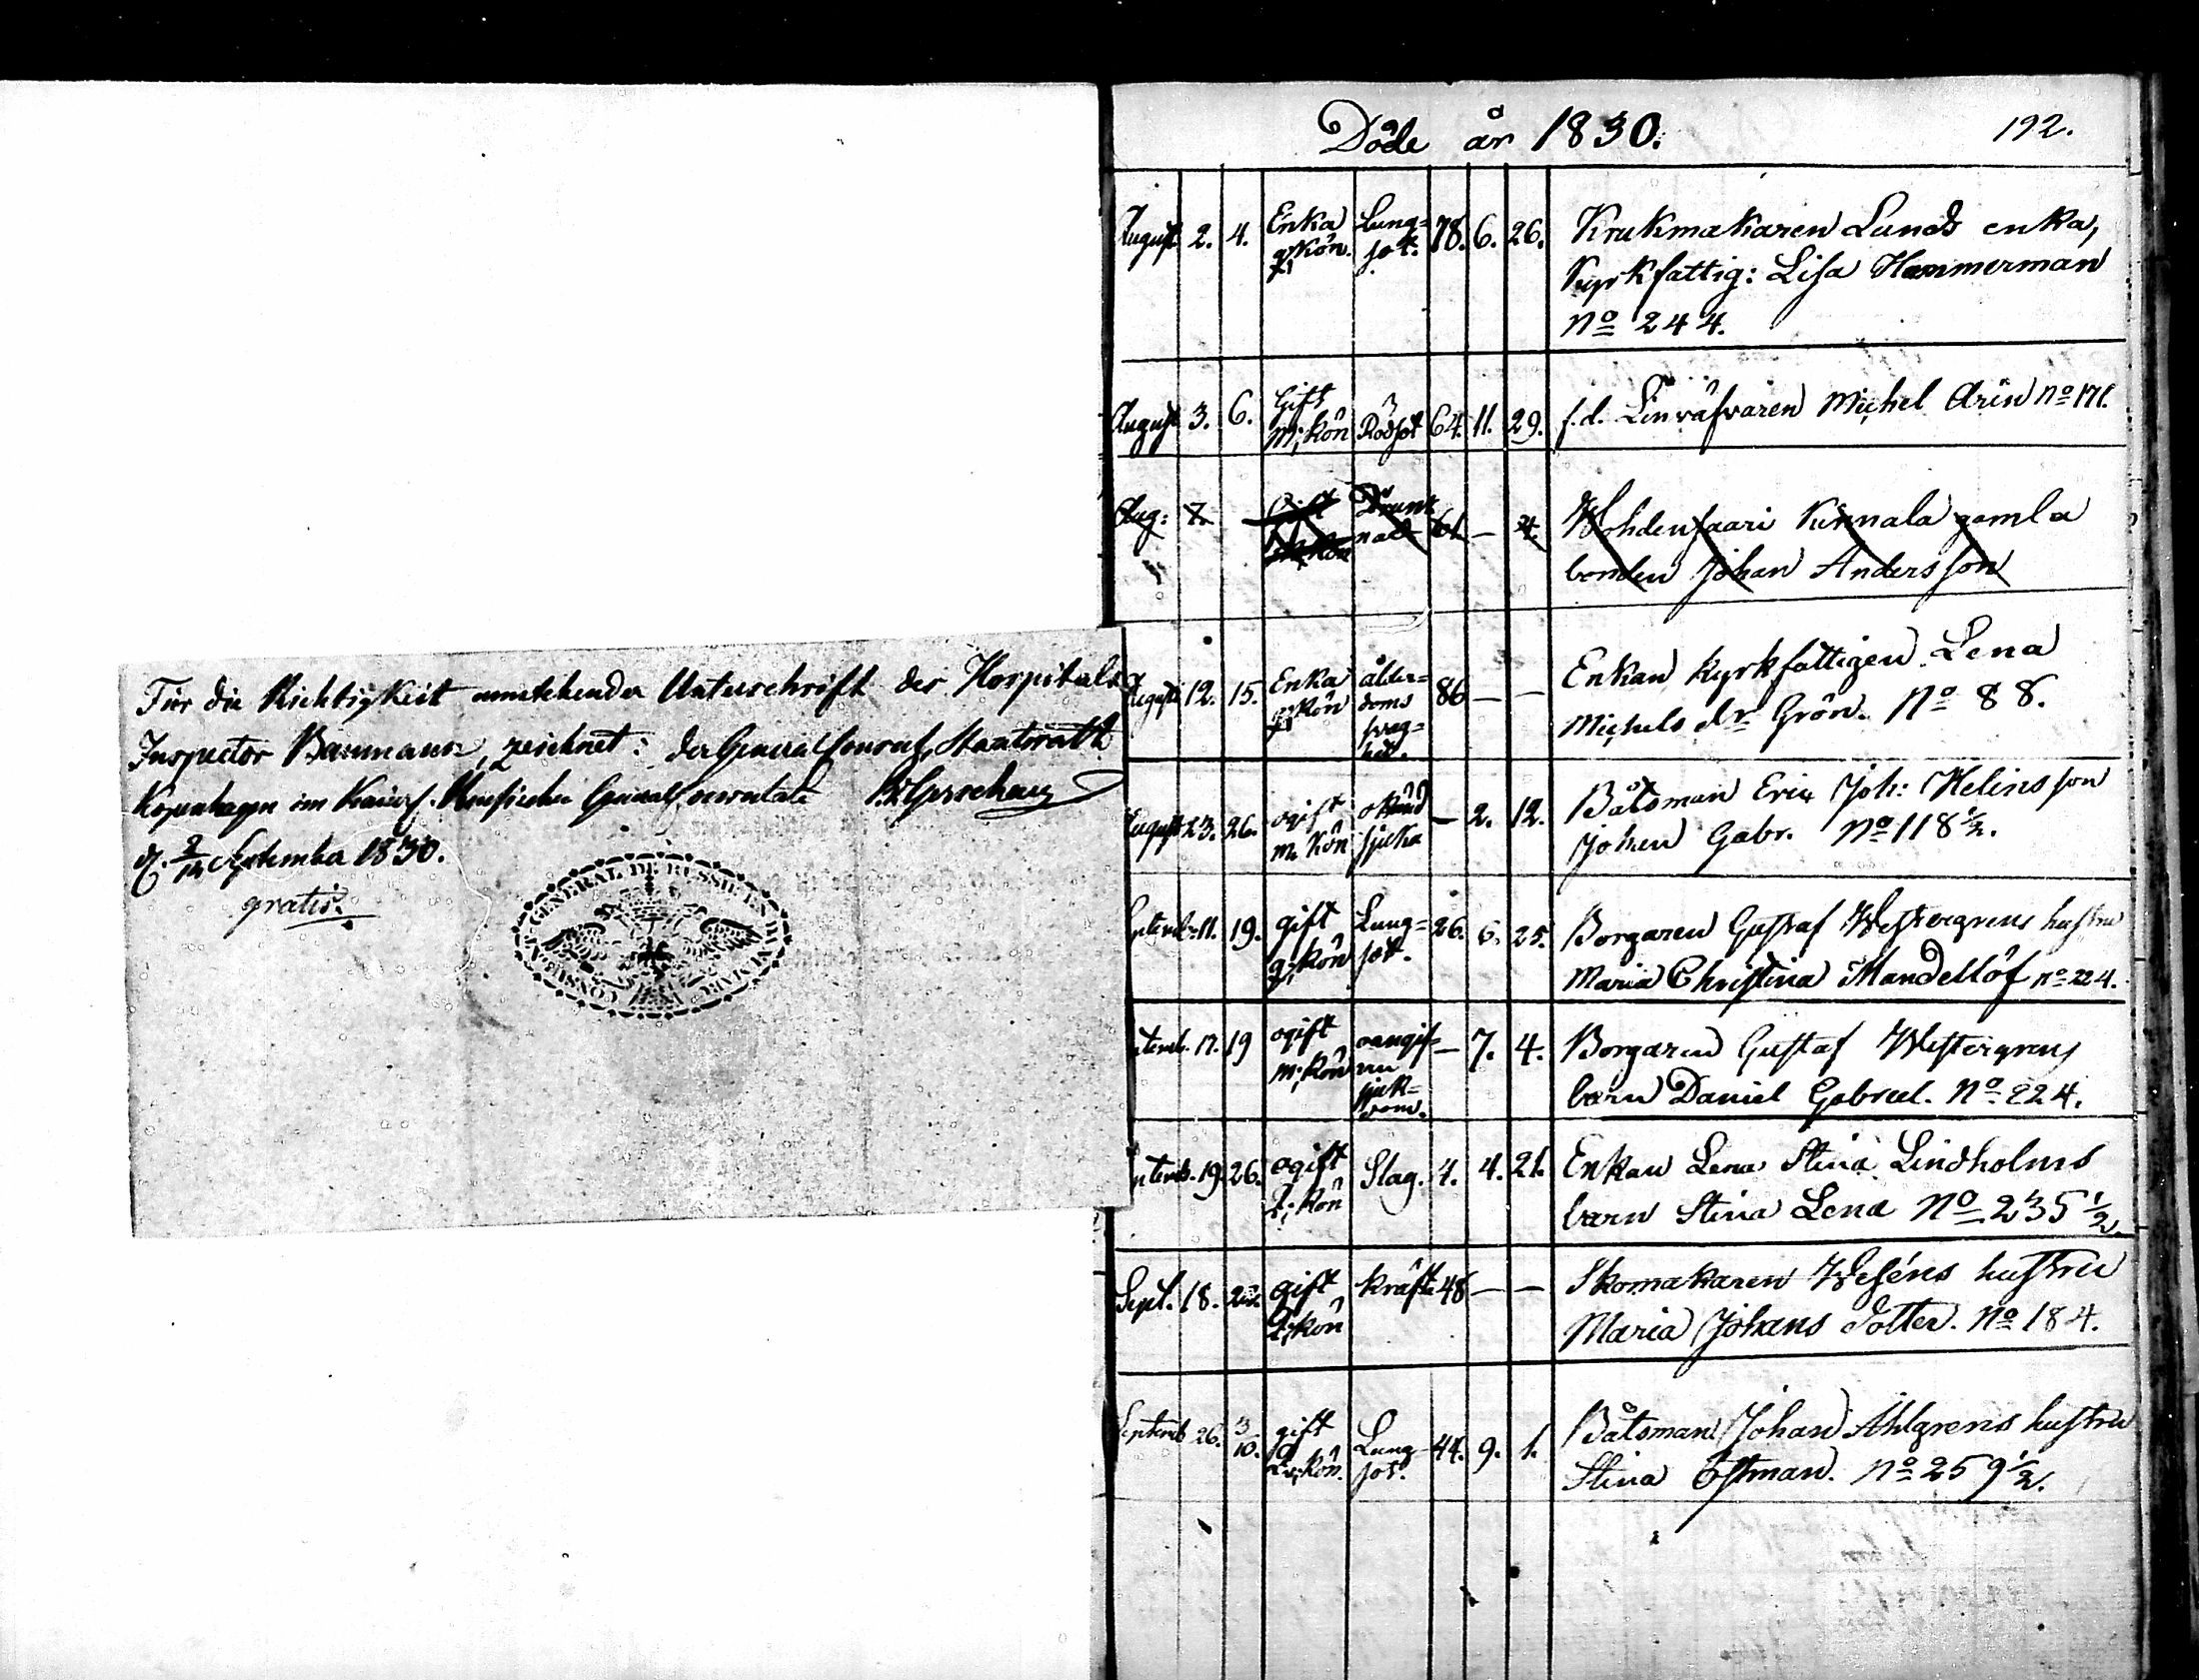 Für die Richtigkeit umstehender Unterschrift des Hospitals
Inspector Baumann, zeichnet: der General Consul, Staatsrath
Kopenhagen im Kaiserl. Russischen General Consulate
d. 2/14 September 1830.
gratis.
CONSULAT GENERAL DE RUSSIE EN DANEMARC
Döde år 1830.
192.
August 2. 4. Enka q. kön. Lung=sot. 78. 6. 26. Krukmakaren Lunds enka,
Kyrkfattig: Lisa Hammerman
No 244.
August 3. 6. Gift m; kön Rödsot 64. 11. 29. f.d. Linväfvaren Michel Arin No 171.
Aug: 7. Gift m; kön Drunknad 61 — 4. Wohdensaari Kinnala gamla
bonden Johan Andersson
August 12. 15. Enka q; kön ålder=doms swag=het. 86 — — Enkan kyrkfattigen Lena
Michels dr Grön. No 88.
August 23. 26. ogift m. kön okänd sjuka — 2. 12. Båtsman Eric Joh: Helins son
Johan Gabr. No 118 ½.
Septemb. 11. 19. gift q; kön Lung=sot. 26. 6. 25. Borgaren Gustaf Westergrens hustru
Maria Christina Mandellöf no 224.
Septemb. 17. 19 ogift m; kön oangif=ven sjuk=dom. — 7. 4. Borgaren Gustaf Westergrens
barn Daniel Gabriel. No 224.
Septemb. 19. 26. ogift q; kön Slag. 4. 4. 21. Enkan Lena Stina Lindholms
barn Stina Lena No 235 ½.
Sept. 18. gift q; kön kräfta 48 — — Skomakaren Weséns hustru
Maria Johans dotter. No 184.
Septemb 26. 3/10. gift q; kön. Lung=sot. 44. 9. 1. Båtsman Johan Ahlgrens hustru
Stina Östman. No 259 ½.